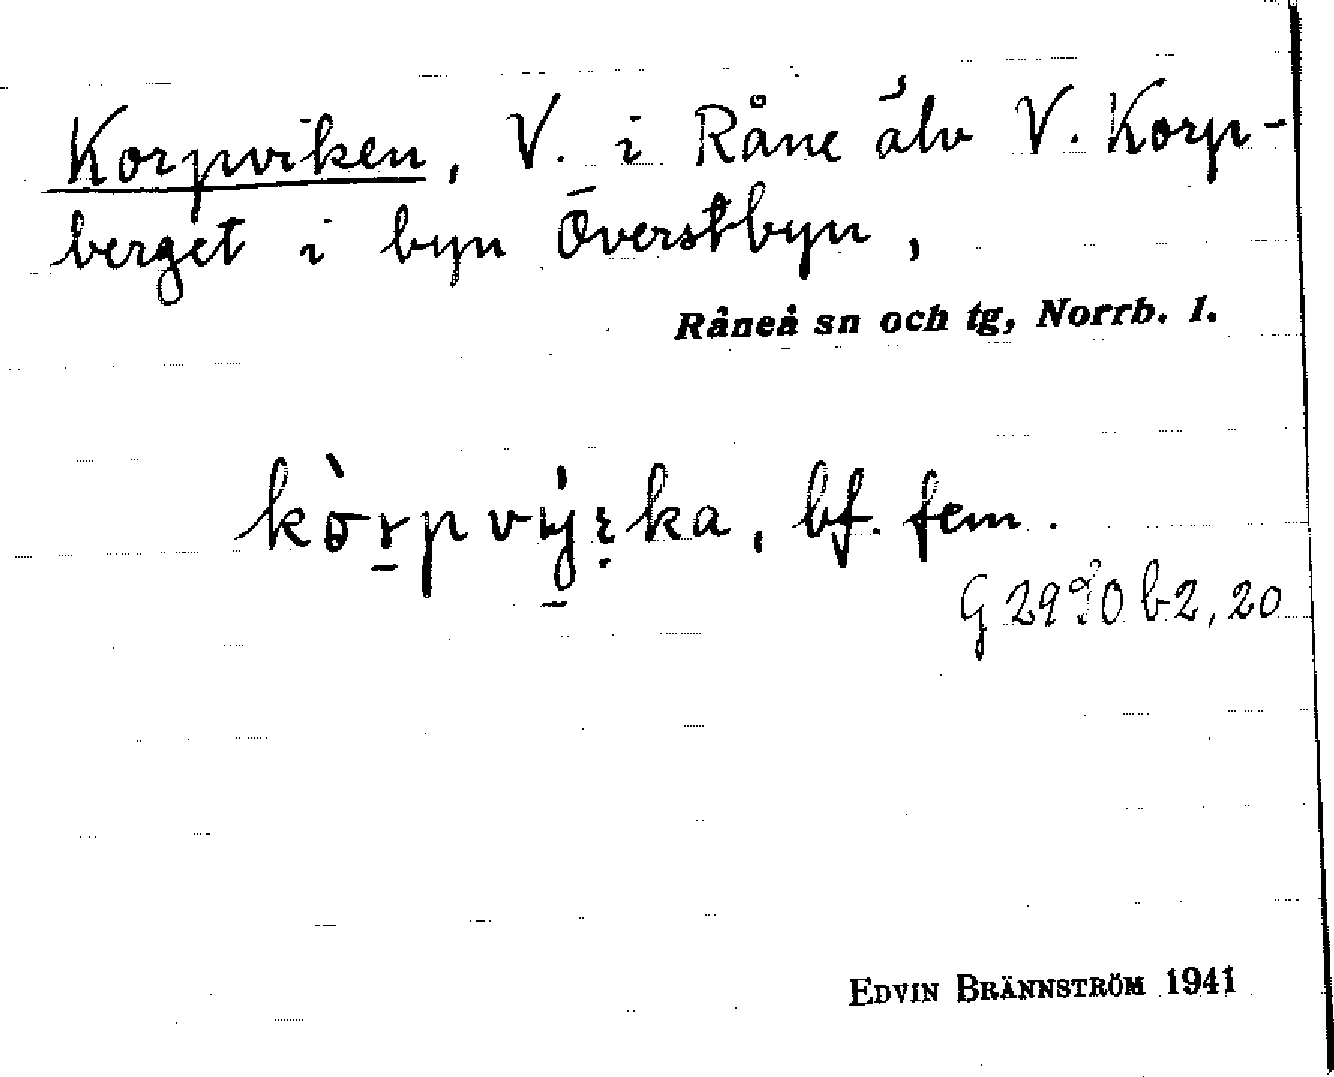 Korpviken, V. i Råne älv V. Korp-
berget i byn Överstbyn,
Råneå sn och tg, Norrb. l.
bf. fem.
G 2990 b2, 20
EDVIN BRÄNNSTRÖM 1941